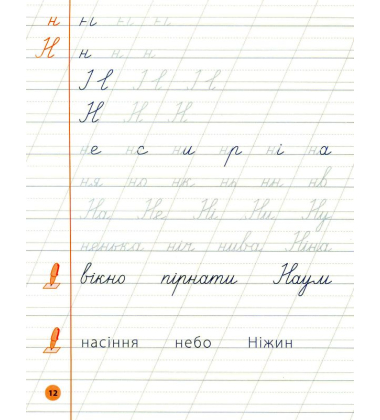 н н н н
Н н н н
Н Н Н
Н Н Н
не нс ни нр ні на
ня но нк нц нн нв
На Не Ні Ни Ну
ненька ніч нива Ніна
вікно пірнати Наум
насіння небо Ніжин
12